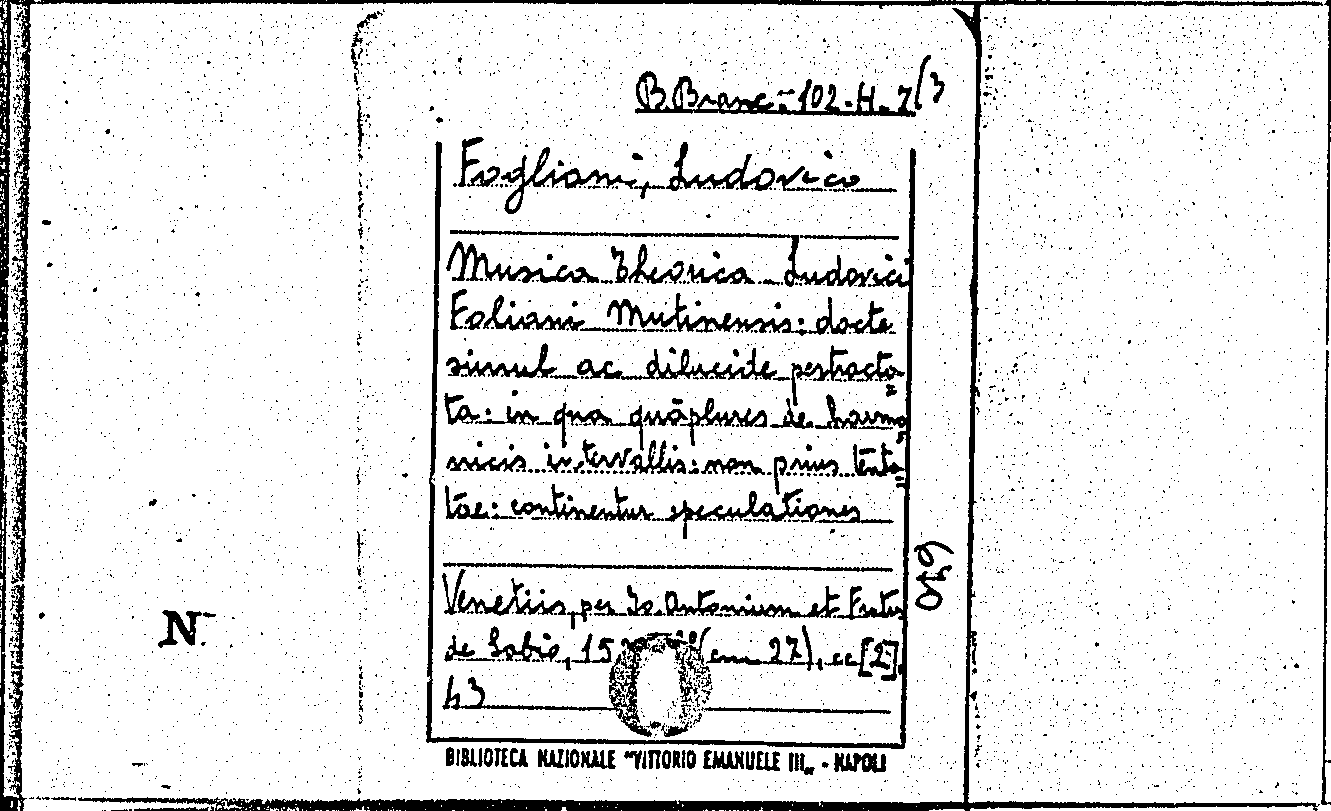 B. Branc. 102-H-7/3
Fogliani, Ludovico
Musica theorica Ludovici
Foliani Mutinensis: docte
simul ac dilucide pertracta=
ta: in qua quāplures de harmo=
nicis intervallis: non prius tēnta=
tae: continentur speculationes
Venetiis, per Io. Antonium et Fratres
de Sabio, 15 (cm 27), cc [2],
43
650
N
BIBLIOTECA NAZIONALE "VITTORIO EMANUELE III„ - NAPOLI